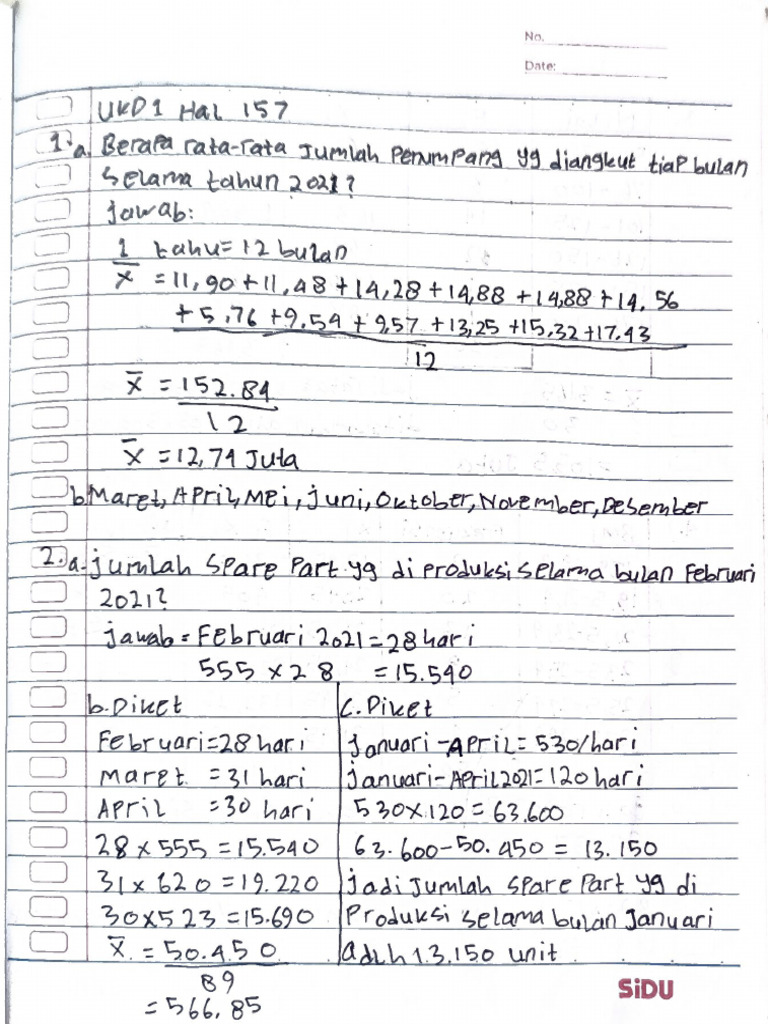 No.
Date:
UKD1 Hal 157
1. a. Berapa rata-rata Jumlah Penumpang yg diangkut tiap bulan
selama tahun 2021?
Jawab:
1 tahu = 12 bulan
x̄ = 11,90 + 11,48 + 14,28 + 14,88 + 14,88 + 14.56
+ 5,76 + 9.54 + 9,57 + 13,25 + 15,32 + 17.43
12
x̄ = 152.84
12
x̄ = 12,74 Juta
b. Maret, April, Mei, Juni, Oktober, November, Desember
2. a. Jumlah Spare Part yg di produksi selama bulan Februari
2021?
Jawab = Februari 2021 = 28 hari
555 x 28 = 15.540
b. Diket
Februari = 28 hari
Maret = 31 hari
April = 30 hari
28 x 555 = 15.540
31 x 620 = 19.220
30x523 = 15.690
x̄ = 50.450
89
= 566,85
C. Diket
Januari - April = 530/hari
Januari - April 2021 = 120 hari
530x120 = 63.600
63.600 - 50.450 = 13.150
Jadi Jumlah Spare Part yg di
Produksi selama bulan Januari
adlh 13.150 unit
SiDU